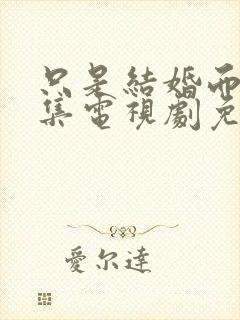 只是結婚而
集電視劇免
愛尔達